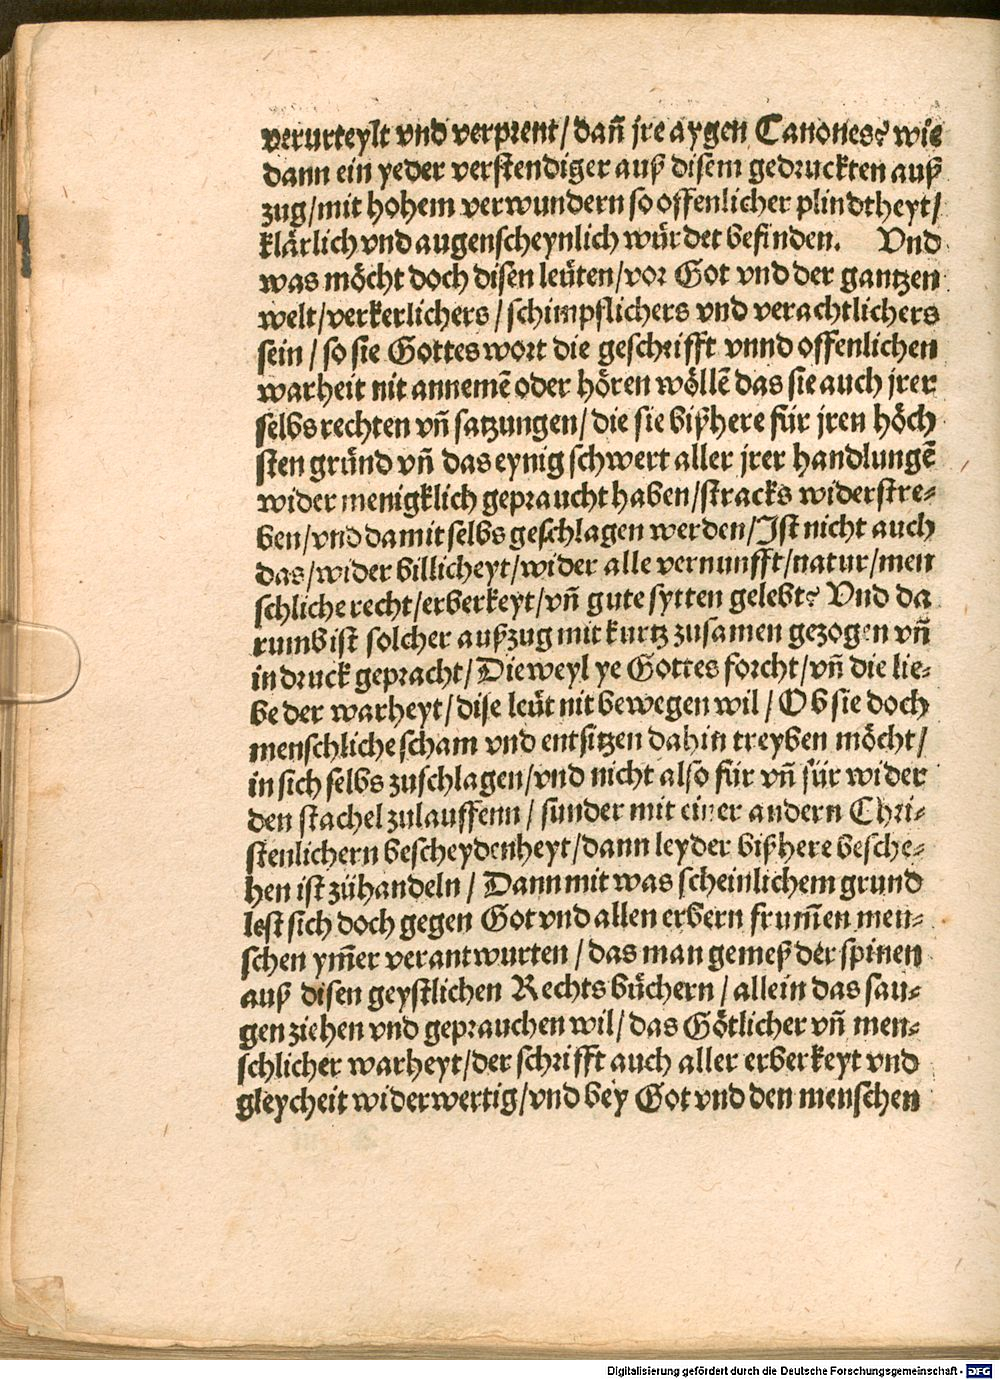 verurteylt vnd verprent/ dañ jre aygen Canones? wie
dann ein yeder verstendiger auß disem gedruckten auß
zug/mit hohem verwundern so offenlicher plindtheyt/
klärlich vnd augenscheynlich würdet befinden. Vnd
was möcht doch disen leüten/vor Got vnd der gantzen
welt/verkerlichers/schimpflichers vnd verachtlichers
sein/so sie Gottes wort die geschrifft vnnd offenlichen
warheit nit annemē oder hören wöllē das sie auch jrer
selbs rechten vñ satzungen/die sie bißhere für jren höch
sten gründ vñ das eynig schwert aller jrer handlungē
wider menigklich gepraucht haben/stracks widerstre-
ben/vnd damit selbs geschlagen werden/Ist nicht auch
das/wider billicheyt/wider alle vernunfft/natur/men
schliche recht/erberkeyt/vñ gute sytten gelebt? Vnd da
rumb ist solcher außzug mit kurtz zusamen gezogen vñ
in druck gepracht/Die weyl ye Gottes forcht/vñ die lie-
be der warheyt/dise leüt nit bewegen wil/Ob sie doch
menschliche scham vnd entsitzen dahin treyben möcht/
in sich selbs zuschlagen/vnd nicht also für vñ für wider
den stachel zulauffenn/sunder mit einer andern Chri-
stenlichern bescheydenheyt/dann leyder bißhere besche-
hen ist zühandeln/Dann mit was scheinlichem grund
lest sich doch gegen Got vnd allen erbern frum̄en men-
schen ym̄er verantwurten/das man gemeß der spinen
auß disen geystlichen Rechtsbüchern/allein das sau-
gen ziehen vnd geprauchen wil/das Götlicher vñ men-
schlicher warheyt/der schrifft auch aller erberkeyt vnd
gleycheit widerwertig/vnd bey Got vnd den menschen
Digitalisierung gefördert durch die Deutsche Forschungsgemeinschaft - DFG